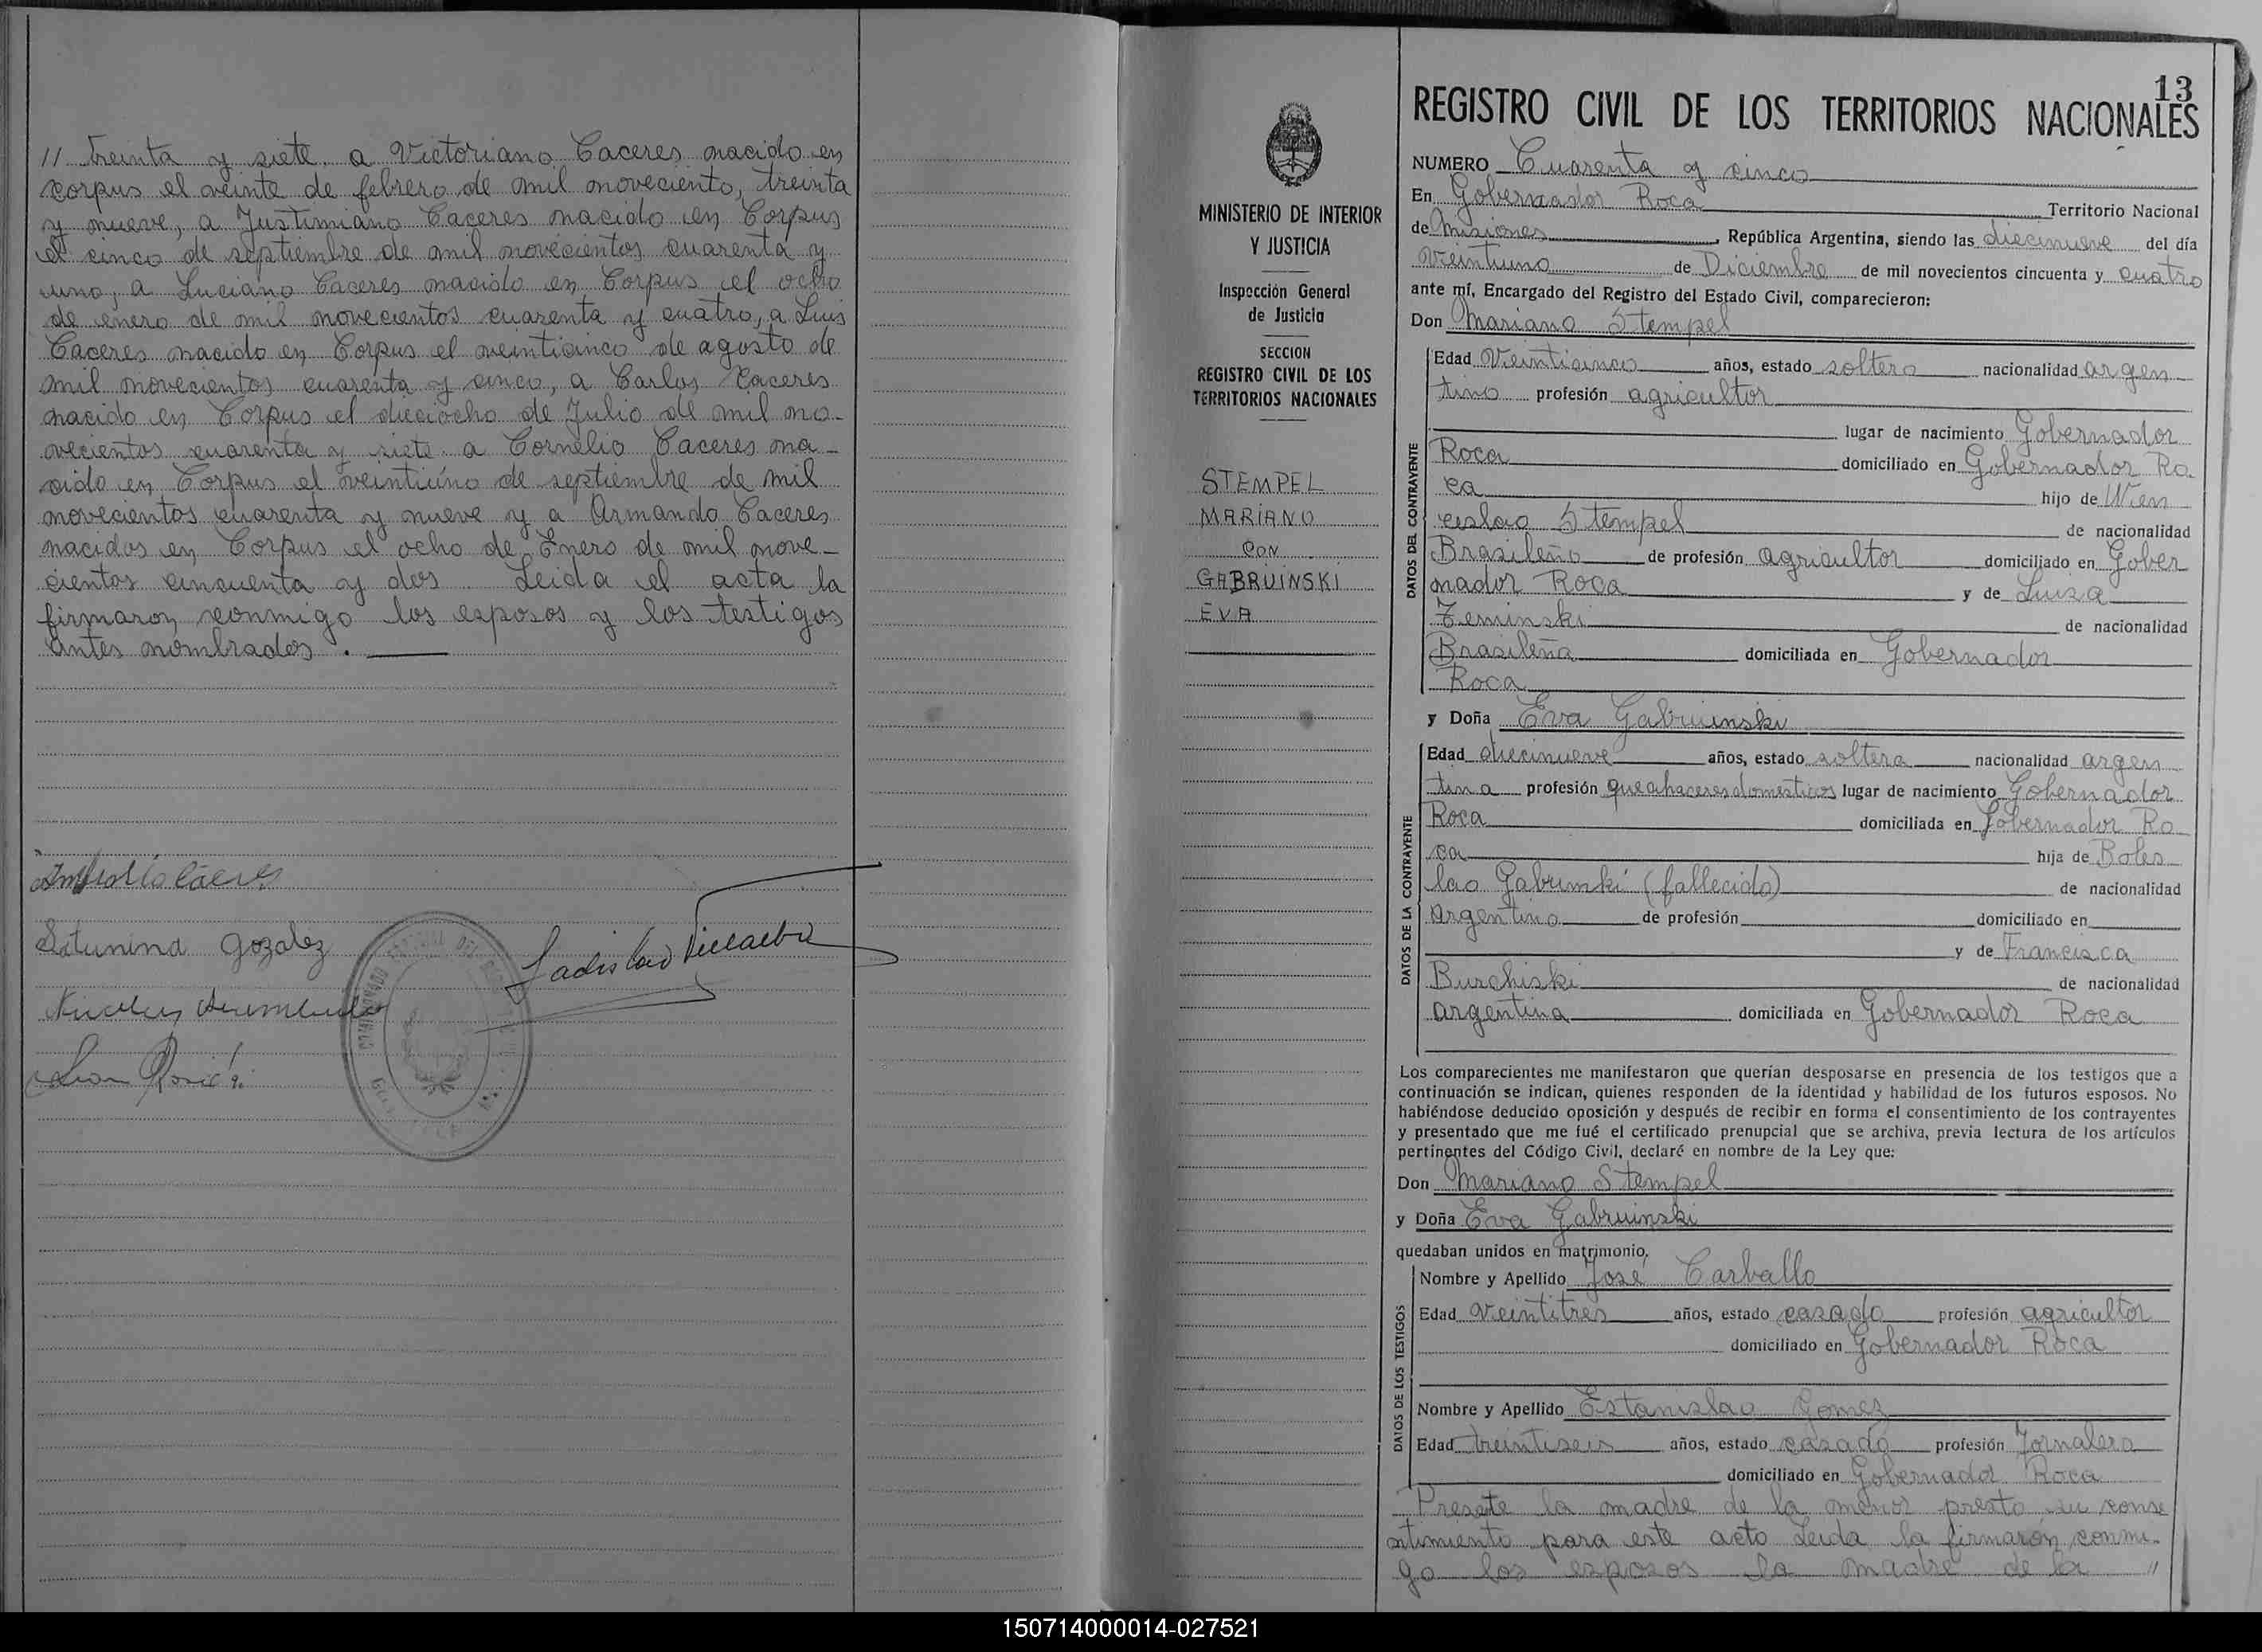 // treinta y siete. a Victoriano Caceres nacido en
Corpus el veinte de febrero de mil noveciento, treinta
y nueve, a Justiniano Caceres nacido en Corpus
el cinco de septiembre de mil novecientos cuarenta y
uno, a Luciano Caceres nacido en Corpus el ocho
de enero de mil novecientos cuarenta y cuatro, a Luis
Caceres nacido en Corpus el veinticinco de agosto de
mil novecientos cuarenta y cinco, a Carlos Caceres
nacido en Corpus el dieciocho de Julio de mil no-
vecientos cuarenta y siete. a Cornelio Caceres na-
cido en Corpus el veintiúno de septiembre de mil
novecientos cuarenta y nueve y a Armando Caceres
nacidos en Corpus el ocho de Enero de mil nove-
cientos cincuenta y dos. Leida el acta la
firmaron conmigo los esposos y los testigos
antes nombrados.
Saturnina Gozalez
Ladislao Villalba
13
REGISTRO CIVIL DE LOS TERRITORIOS NACIONALES
MINISTERIO DE INTERIOR
Y JUSTICIA
Inspección General
de Justicia
SECCION
REGISTRO CIVIL DE LOS
TERRITORIOS NACIONALES
STEMPEL
MARIANO
CON
GABRUINSKI
EVA
NUMERO Cuarenta y cinco
En Gobernador Roca Territorio Nacional
de Misiones, República Argentina, siendo las diecinueve del día
Veintiuno de Diciembre de mil novecientos cincuenta y cuatro
ante mí, Encargado del Registro del Estado Civil, comparecieron:
Don Mariano Stempel
DATOS DEL CONTRAYENTE
Edad Veinticinco años, estado soltero nacionalidad argen
tino profesión agricultor
lugar de nacimiento Gobernador
Roca domiciliado en Gobernador Ro
ca hijo de Wien
ceslao Stempel de nacionalidad
Brasileño de profesión agricultor domiciliado en Gober
nador Roca y de Luisa
Zeminski de nacionalidad
Brasileña domiciliada en Gobernador
Roca
y Doña Eva Gabruinski
DATOS DE LA CONTRAYENTE
Edad diecinueve años, estado soltera nacionalidad argen
tina profesión queahaceres domesticos lugar de nacimiento Gobernador
Roca domiciliada en Gobernador Ro
ca hija de Boles
lao Gabrinski (fallecido) de nacionalidad
Argentino de profesión domiciliado en
y de Francisca
Burchiski de nacionalidad
argentina domiciliada en Gobernador Roca
Los comparecientes me manifestaron que querían desposarse en presencia de los testigos que a
continuación se indican, quienes responden de la identidad y habilidad de los futuros esposos. No
habiéndose deducido oposición y después de recibir en forma el consentimiento de los contrayentes
y presentado que me fué el certificado prenupcial que se archiva, previa lectura de los artículos
pertinentes del Código Civil, declaré en nombre de la Ley que:
Don Mariano Stempel
y Doña Eva Gabruinski
quedaban unidos en matrimonio.
DATOS DE LOS TESTIGOS
Nombre y Apellido José Carballo
Edad veintitres años, estado casado profesión agricultor
domiciliado en Gobernador Roca
Nombre y Apellido Estanislao Gomez
Edad treintiseis años, estado casado profesión Jornalero
domiciliado en Gobernador Roca
Presente la madre de la menor presto su conse
ntimiento para este acto Leida la firmaron conmi-
go los esposos la madre de la //
150714000014-027521